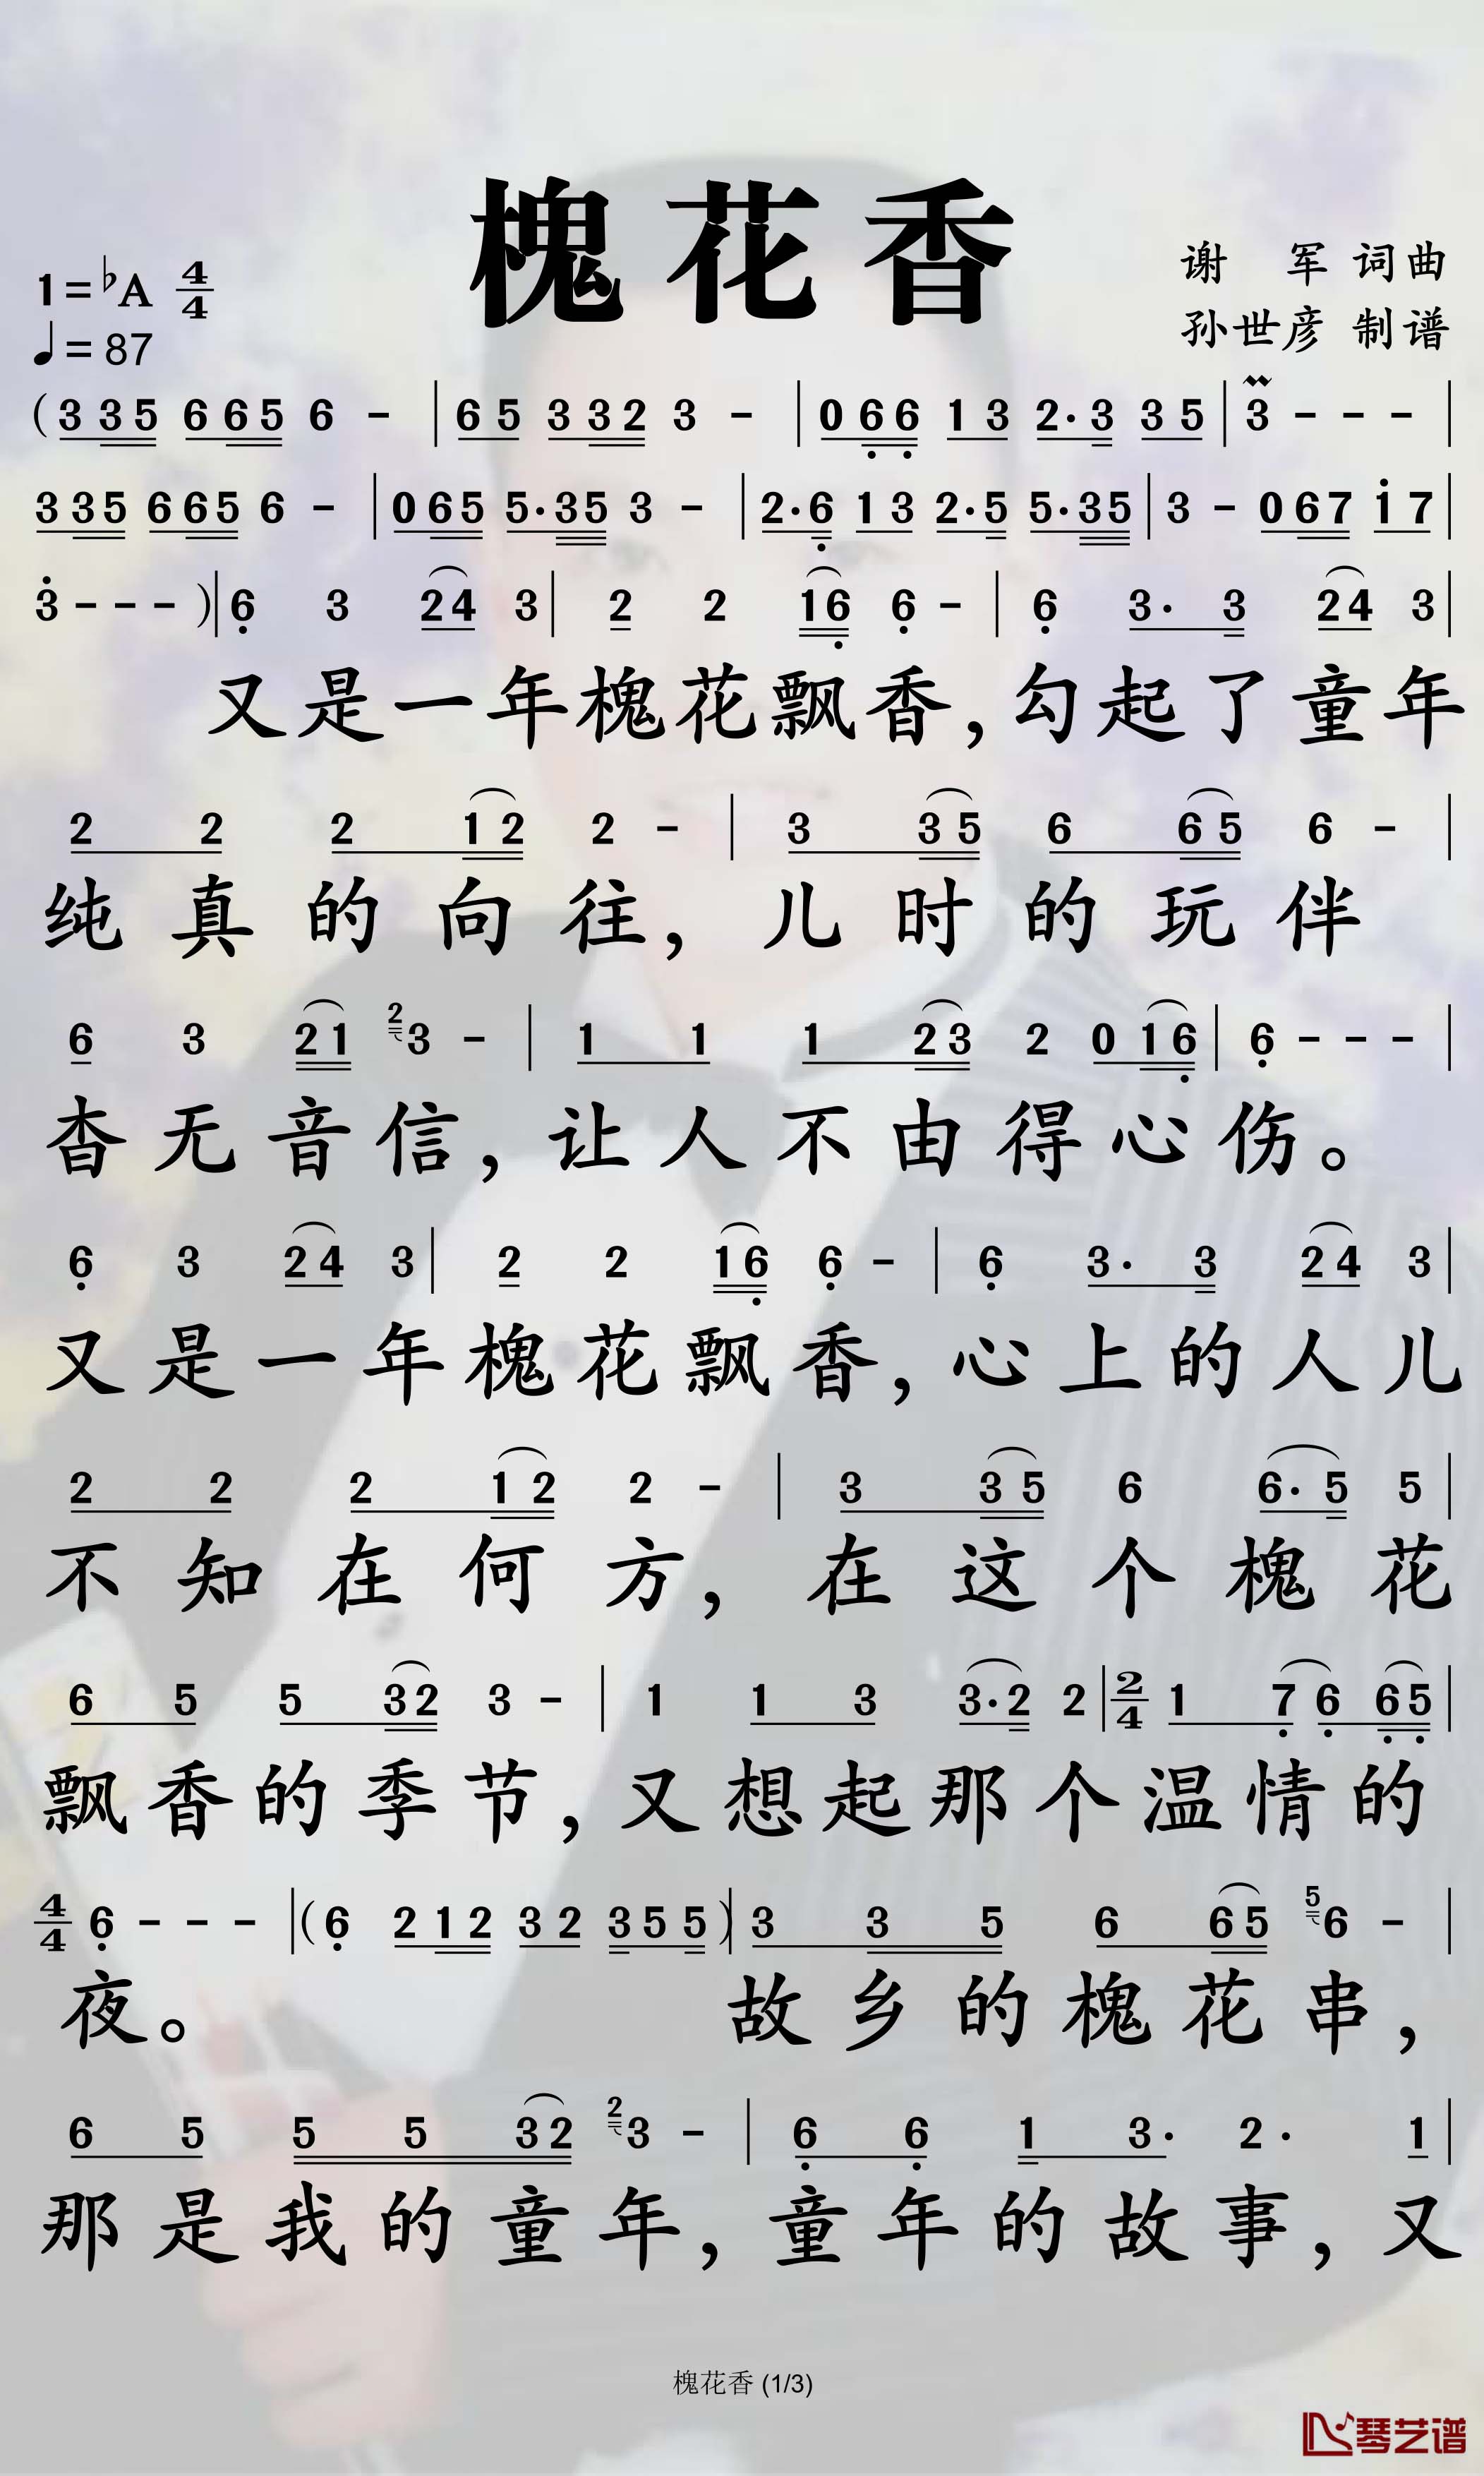 槐花香
1=♭A 4/4
♩=87
谢 军 词曲
孙世彦 制谱
(3 3 5 6 6 5 6 - | 6 5 3 3 2 3 - | 0 6 6 1 3 2· 3 3 5 | 3 - - - |
3 3 5 6 6 5 6 - | 0 6 5 5· 3 5 3 - | 2· 6 1 3 2· 5 5· 3 5 | 3 - 0 6 7 1 7 |
3 - - - )| 6 3 2 4 3 | 2 2 1 6 6 - | 6 3· 3 2 4 3 |
又是一年槐花飘香，勾起了童年
2 2 2 1 2 2 - | 3 3 5 6 6 5 6 - |
纯真的向往，儿时的玩伴
6 3 2 1 2 3 - | 1 1 1 2 3 2 0 1 6 | 6 - - - |
杳无音信，让人不由得心伤。
6 3 2 4 3 | 2 2 1 6 6 - | 6 3· 3 2 4 3 |
又是一年槐花飘香，心上的人儿
2 2 2 1 2 2 - | 3 3 5 6 6· 5 5 |
不知在何方，在这个槐花
6 5 5 3 2 3 - | 1 1 3 3· 2 2 | 2/4 1 7 6 6 5 |
飘香的季节，又想起那个温情的
4/4 6 - - - |( 6 2 1 2 3 2 3 5 5 )| 3 3 5 6 6 5 5 6 - |
夜。 故乡的槐花串，
6 5 5 5 3 2 2 3 - | 6 6 1 3· 2· 1 |
那是我的童年，童年的故事，又
槐花香 (1/3)
琴艺谱